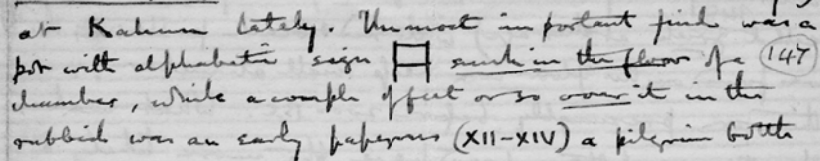 at Kahun lately. The most important find was a
pot with alphabetic sign 日 sunk in the floor of a (147)
chamber, while a couple of feet or so over it in the
rubbish was an early papyrus (XII-XIV) a pilgrim bottle